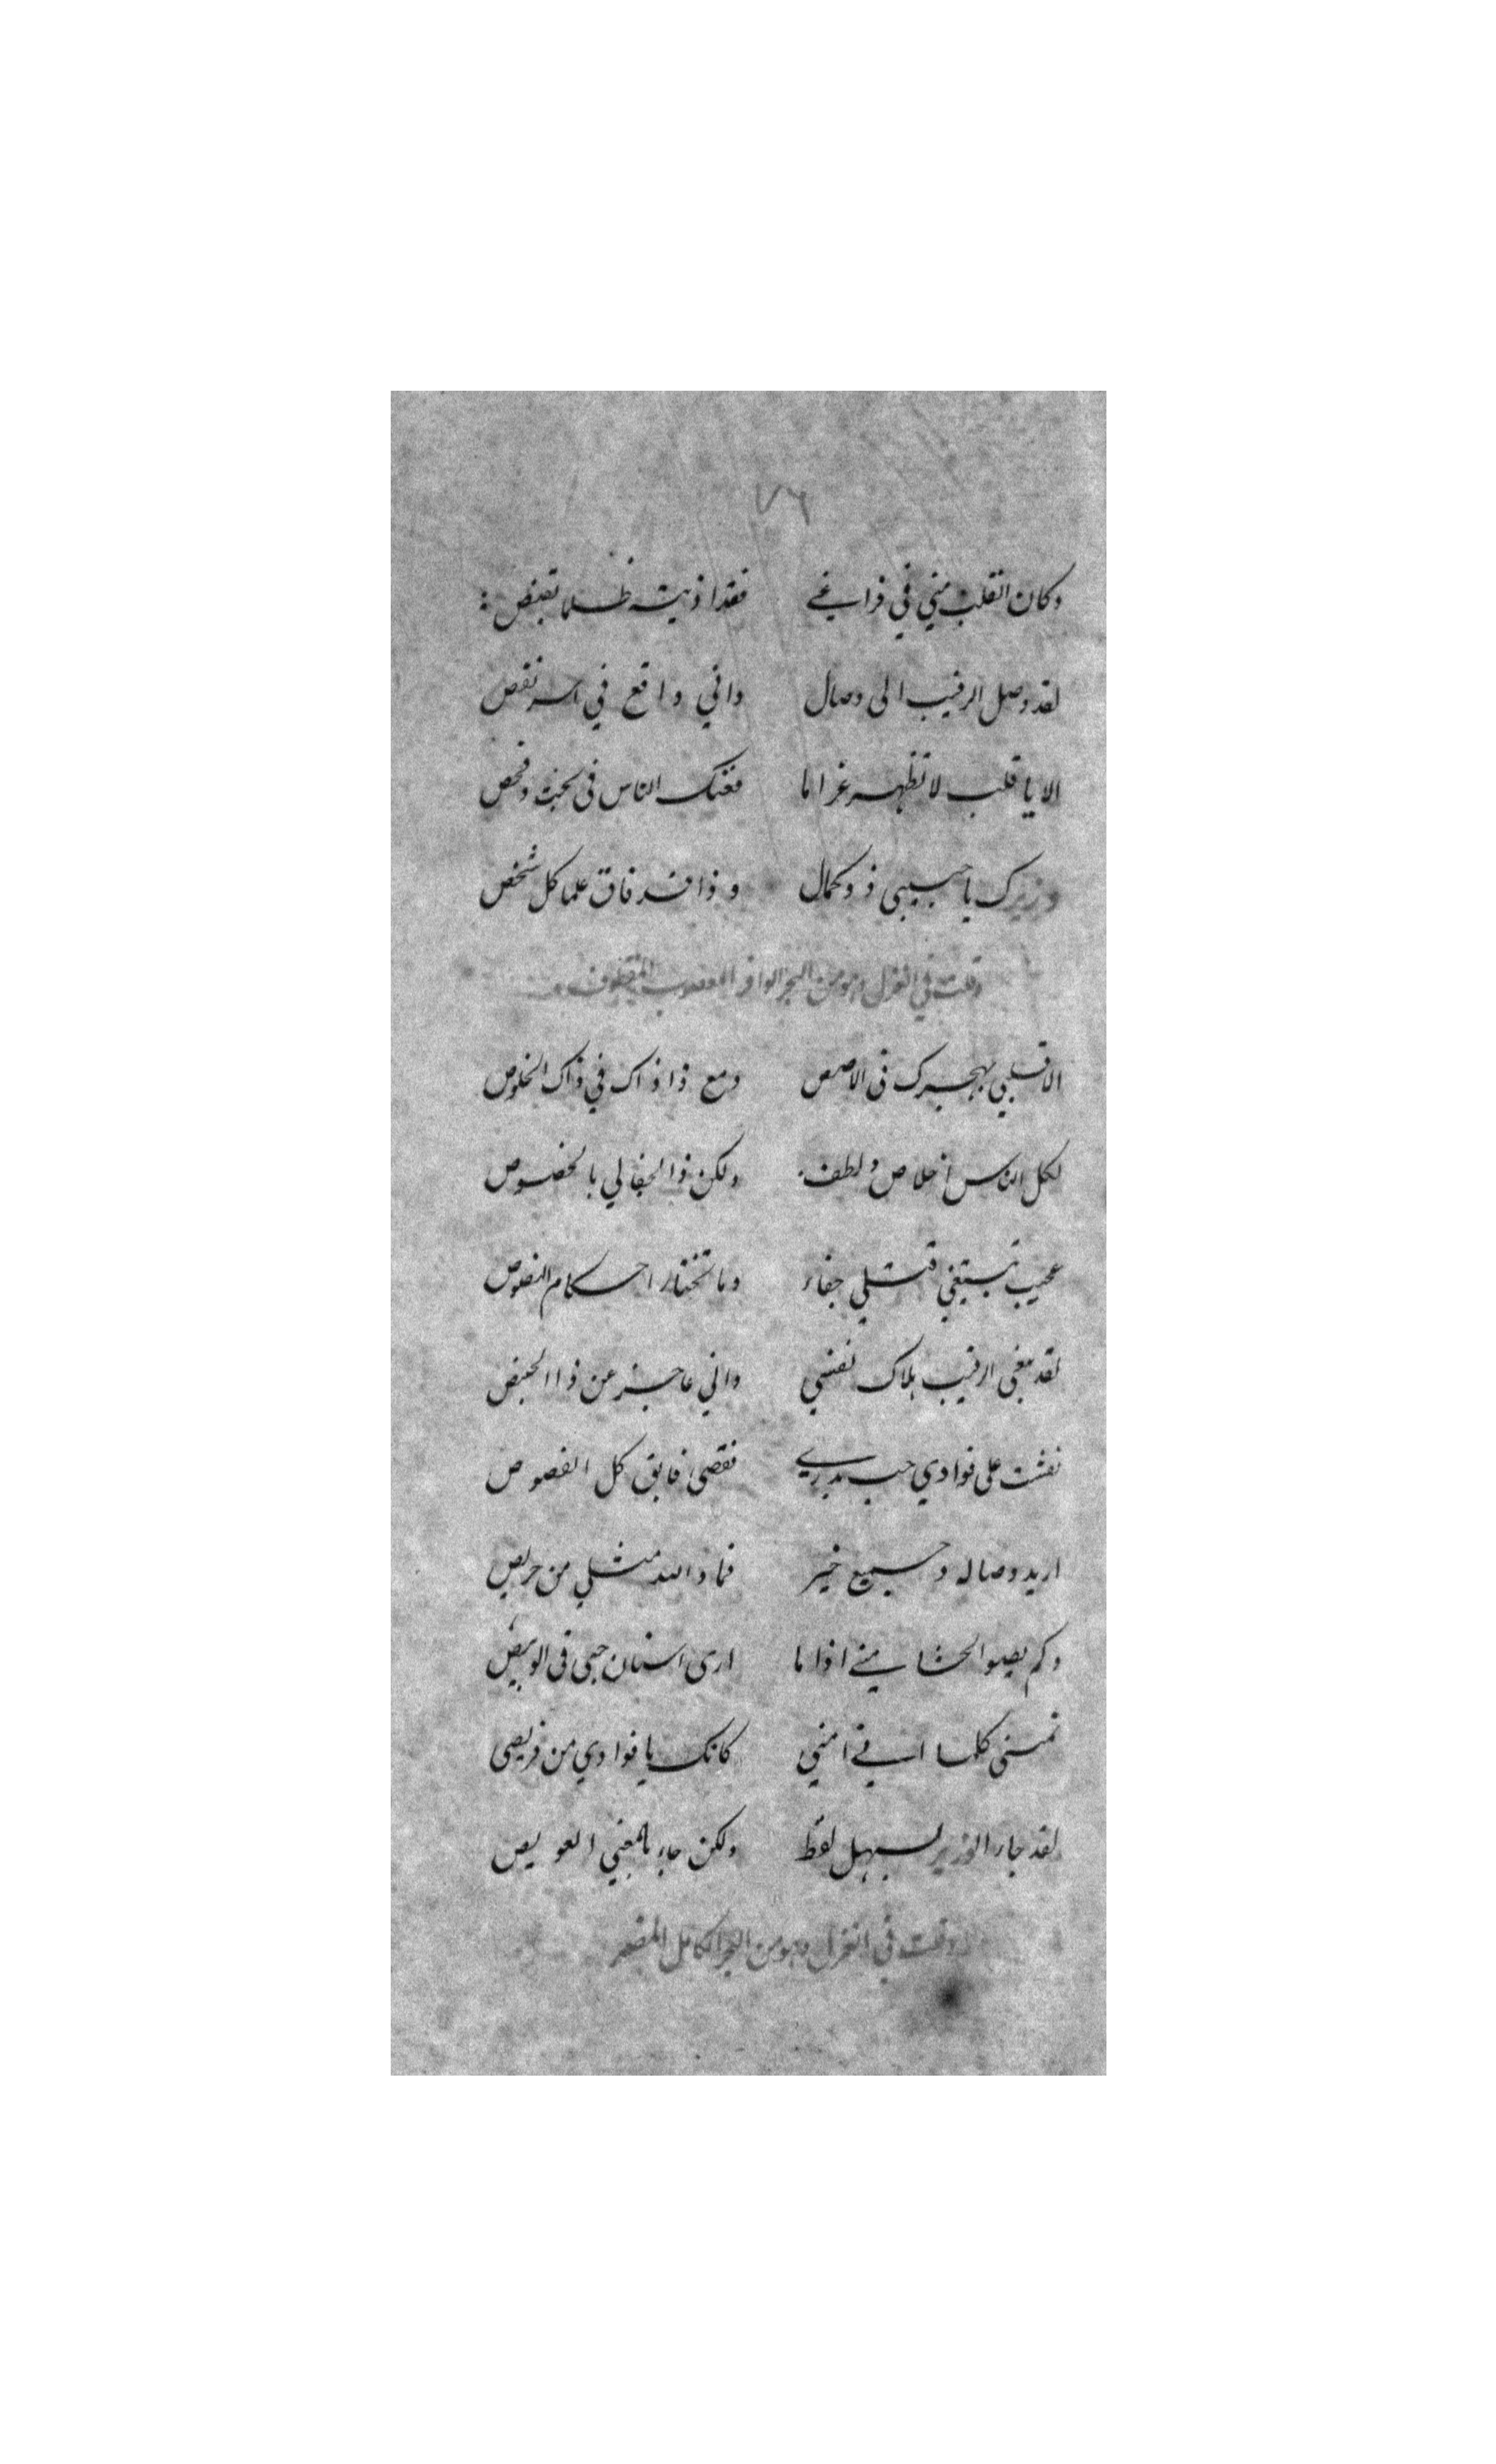 ٧٦
وكان القلب مني في فراغي فقد اذيته ظلما بقبص
لقد وصل الرقيب الى وصال واني واقع في اسر نقص
الا يا قلب لا تظهر غراما فعنك الناس في بحث وفحص
وزيرك يا حبيبي ذو كمال وذا قد فاق علما كل شخص
وقلت في الغزل وهو من البحر الوافر المعصوب المقطوف
الا قلبي بهجرك في الاصص ومع ذا ذاك في ذاك الخلوص
لكل الناس اخلاص ولطف ولكن ذا الجفا لي بالخصوص
عجيب تبتغي قتلي جفاء وما تختار احكام النصوص
لقد يبغي الرقيب هلاك نفسي واني عاجز عن ذا
نقشت على فوادي حب بدري ففصي فايق كل الفصوص
اريد وصاله وجميع خير فما والله مثلي من حريص
وكم يصبو الحشا مني اذا ما ارى اسنان حبي في الوبيص
تمنى كلما امني كانك يا فوادي من فريصي
لقد جاء الوزير بسهل لفظ ولكن جاء بالمعنى العويص
وقلت في الغزل وهو من البحر الكامل المضمر